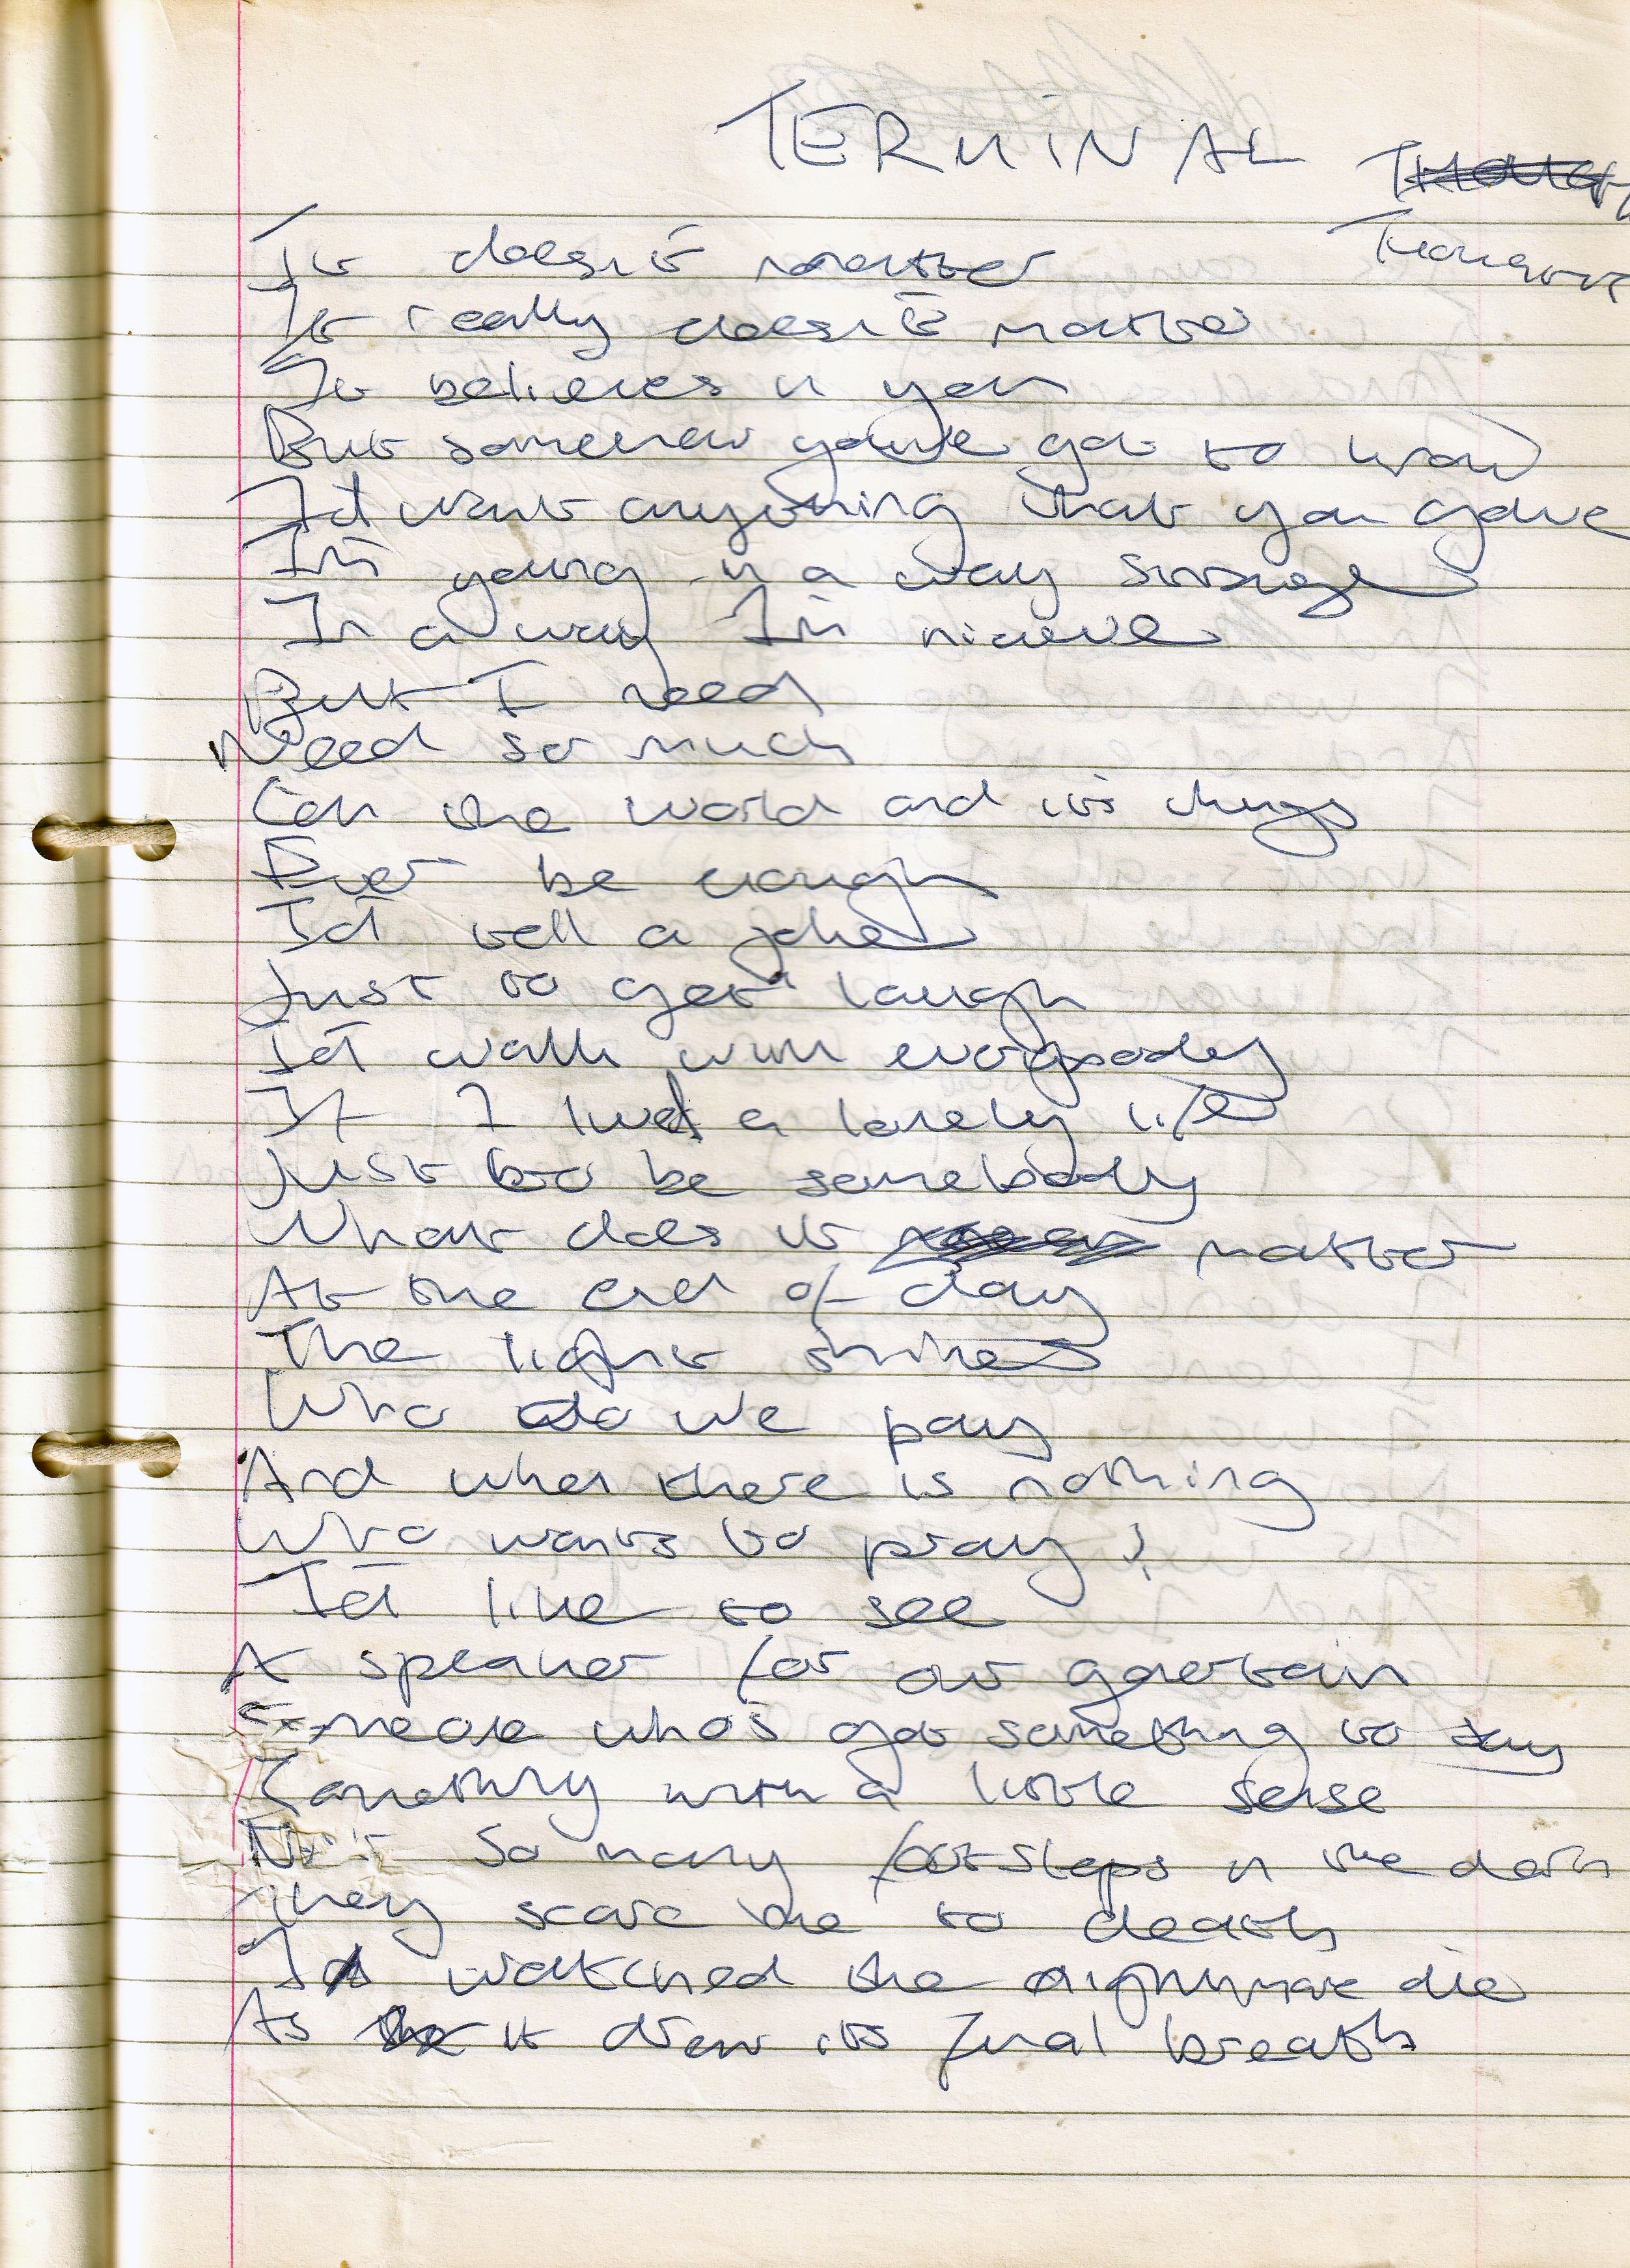 TERMINAL
Thoughts
It doesn't matter
It really doesn't matter
It believes in you
But somehow you've got to
I'd want anything that you gave
I'm young in a way strange
In a way I'm nieave
But I need
Need so much
Can the world and its things
Ever be enough
I'd tell a joke
Just to get laugh
I'd walk with everybody
If I lived a lonely life
Just to be somebody
What does it matter
At the end of day
The light shines
Who do we pay
And when there is nothing
Who wants to pray?
I'd like to see
A speaker for our
Someone who's got something to say
Something with a little sense
So many footsteps in the dark
They scare me to death
I watched the nightmare die
As it drew its final breath